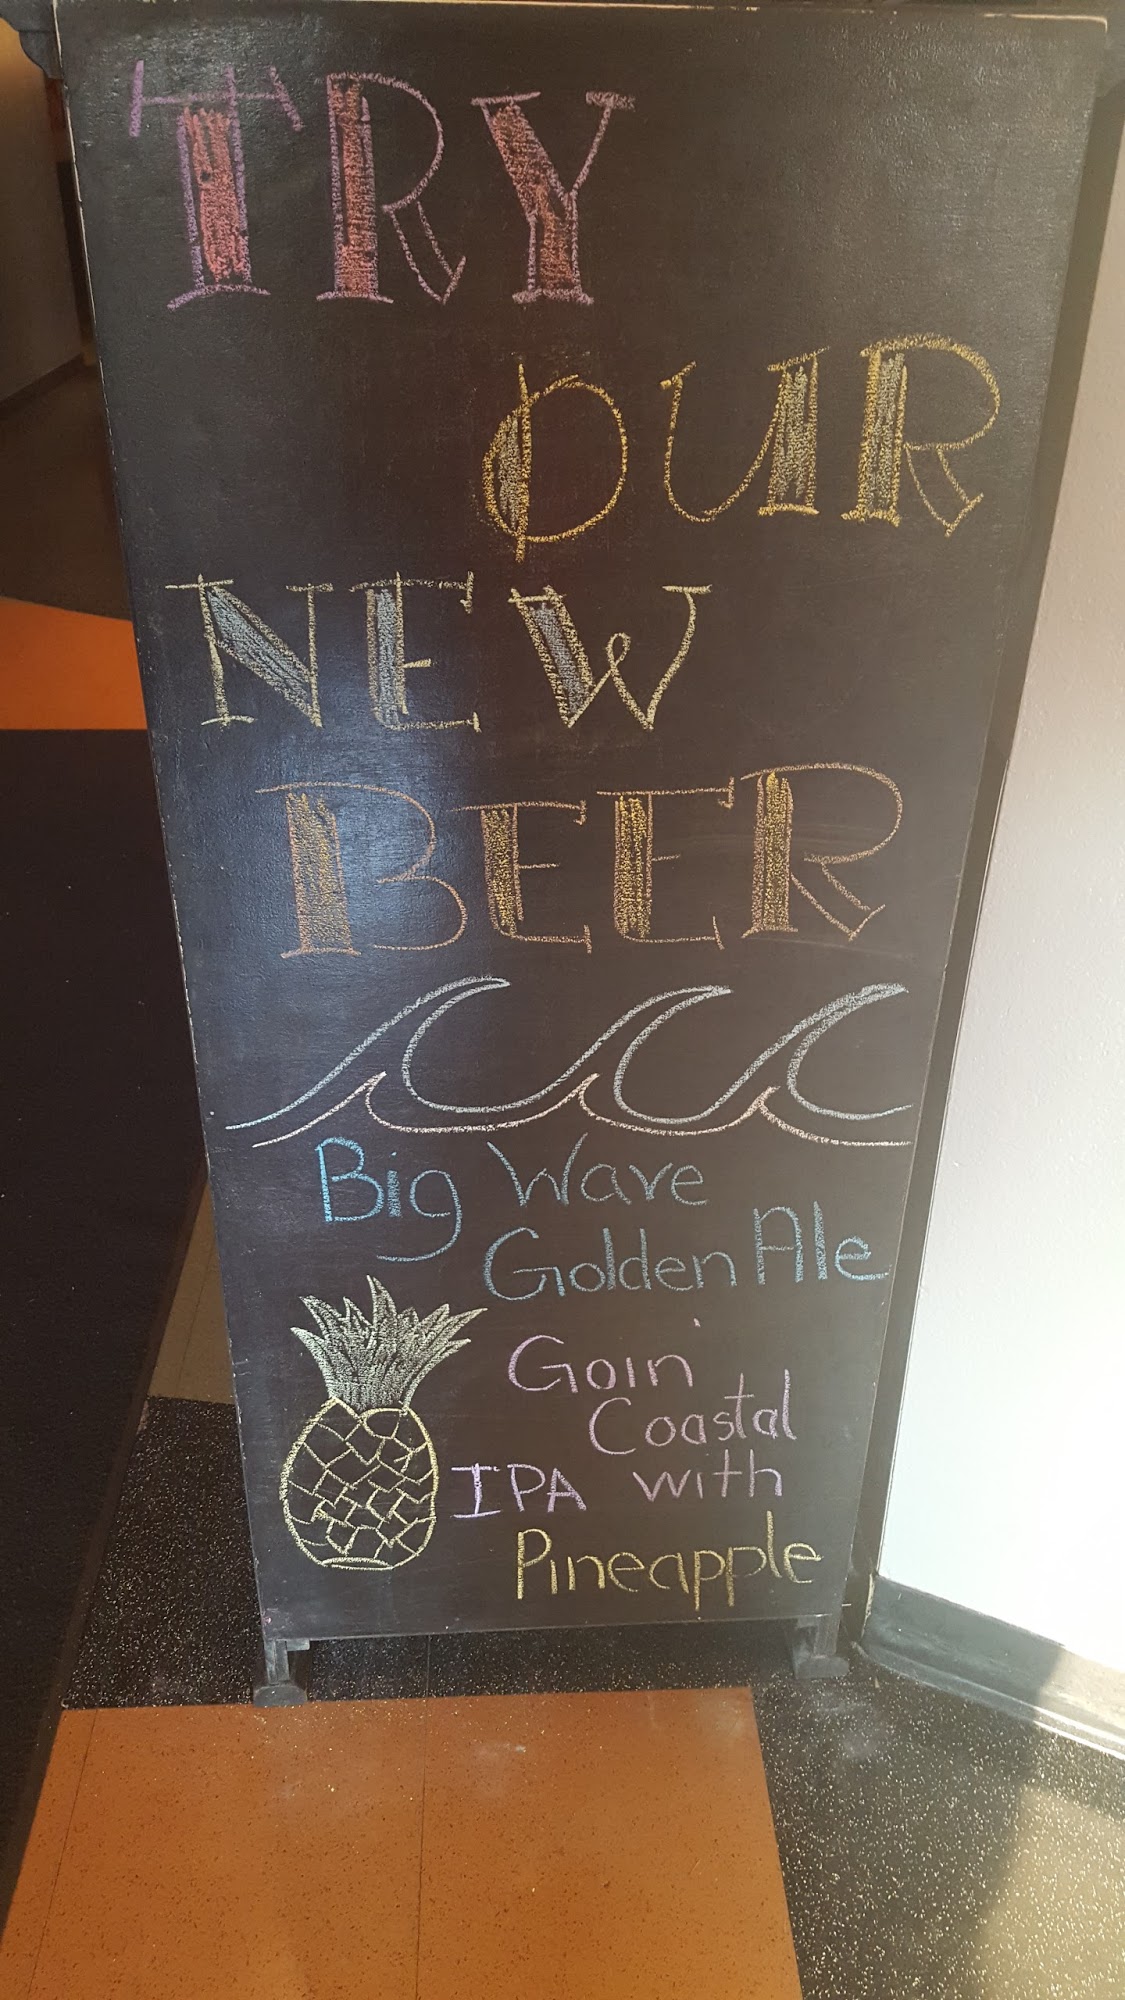 TRY
OUR
NEW
BEER
Big Wave
Golden Ale
Goin'
Coastal
IPA with
Pineapple